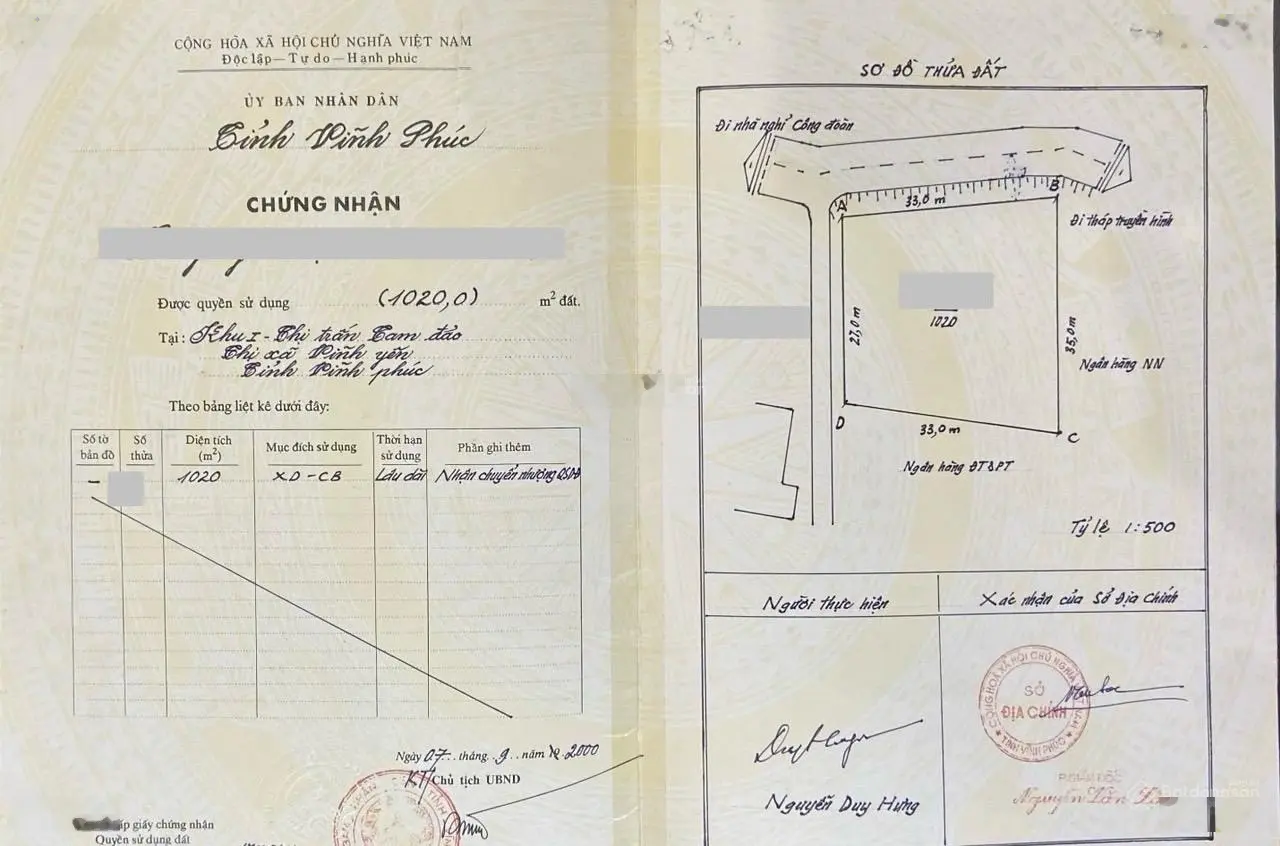 CỘNG HÒA XÃ HỘI CHỦ NGHĨA VIỆT NAM
Độc lập — Tự do — Hạnh phúc
ỦY BAN NHÂN DÂN
Tỉnh Vĩnh Phúc
CHỨNG NHẬN
Được quyền sử dụng (1020,0) m² đất.
Tại: Khu I - Thị trấn Tam đảo
Thị xã Vĩnh yên
Tỉnh Vĩnh phúc
Theo bảng liệt kê dưới đây:
Số tờ bản đồ Số thửa Diện tích (m²) Mục đích sử dụng Thời hạn sử dụng Phần ghi thêm
– 1020 XD-CB Lâu dài Nhận chuyển nhượng QSDĐ
Ngày 07 tháng 9 năm 2000
KT/ Chủ tịch UBND
cấp giấy chứng nhận
Quyền sử dụng đất
SƠ ĐỒ THỬA ĐẤT
Đi nhà nghỉ Công đoàn
A 33,0 m B
Đi tháp truyền hình
1020
27,0 m
35,0 m
Ngân hàng NN
D 33,0 m C
Ngân hàng ĐT&PT
Tỷ lệ 1:500
Người thực hiện
Xác nhận của Sở Địa Chính
CỘNG HÒA XÃ HỘI CHỦ NGHĨA VIỆT NAM
SỞ
ĐỊA CHÍNH
TỈNH VĨNH PHÚC
Nguyễn Duy Hưng
P.GIÁM ĐỐC
Nguyễn Văn
Batdongsan